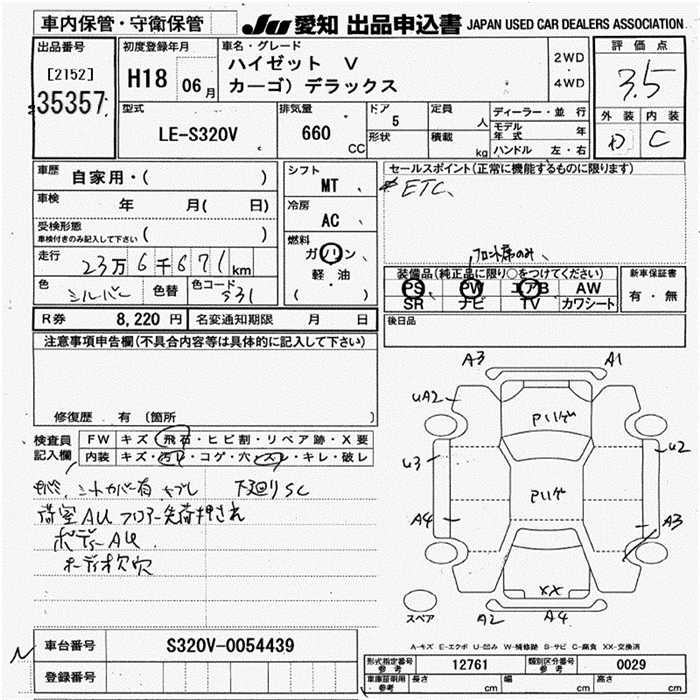 車内保管・守衛保管
JU 愛知 出品申込書 JAPAN USED CAR DEALERS ASSOCIATION
出品番号
[2152]
35357
初度登録年月
H18 06月
車名・グレード
ハイゼット V
カーゴ) デラックス
2WD
・
4WD
評価点
3.5
外装 内装
D C
型式
LE-S320V
排気量
660 CC
ドア
5
形状
定員
人
積載
kg
ディーラー・並行
モデル年式 年
ハンドル 左・右
車歴 自家用・( )
車検 年 月( 日)
受検形態
車検付きのみ記入して下さい ( )
走行 23万6千671km
色 シルバー 色替 色コード S31
シフト
MT
冷房
AC
燃料
ガソリン
軽・油
( )
セールスポイント(正常に機能するものに限ります)
ETC
フロント席のみ
装備品(純正品に限り○をつけてください)
PS PW エアB AW
SR ナビ TV カワシート
新車保証書
有・無
R券 8,220 円 名変通知期限 月 日
後日品
注意事項申告欄(不具合内容等は具体的に記入して下さい)
修復歴 有 (箇所 )
検査員記入欄
FW キズ・飛石・ヒビ割・リペア跡・X要
内装 キズ・汚レ・コゲ・穴・スレ・キレ・破レ
シートカバー有 下廻りSC
荷室AU フロアー
ボディーAU
オーディオ欠穴
A3 A1
uA2
u2
u3
A4 A3
A2 A4
XX
スペア
A-キズ E-エクボ U-凹み W-補修跡 S-サビ C-腐食 XX-交換済
車台番号 S320V-0054439
登録番号
形式指定番号参考 12761 類別区分番号参考 0029
車庫証明用参考 長さ cm 幅 cm 高さ cm